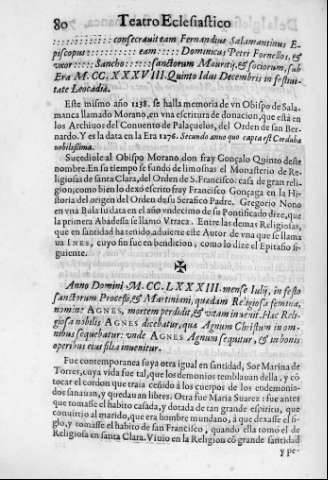 80 Teatro Eclesiastico
:::::::::::::: consecrauit eam Fernandus Salamantinus E-
piscopus :::::::::: eam ::::: Dominicus Petri Fornellos, &
vxor ::::: Sancho :::::: sanctorum Mauritij, & sociorum, sub
Era M. CC. XXXVIII. Quinto Idus Decembris in festiui-
tate Leocadiæ.
Este mismo año 1238. se halla memoria de vn Obispo de Sala-
manca llamado Morano, en vna escritura de donacion, que està en
los Archiuos del Conuento de Palaçuelos, del Orden de san Ber-
nardo. Y es la data en la Era 1276. Secundo anno quo capta est Corduba
nobilissima.
Sucediole al Obispo Morano don fray Gonçalo Quinto deste
nombre. En su tiempo se fundò de limosnas el Monasterio de Re-
ligiosas de santa Clara, del Orden de S. Francisco: casa de gran reli-
gion; como bien lo dexò escrito fray Francisco Gonçaga en la Hi-
storia del origen del Orden de su Serafico Padre. Gregorio Nono
en vna Bula su data en el año vndecimo de su Pontificado dize, que
la primera Abadessa se llamò Vrraca. Entre las demas Religiosas,
que en santidad ha tenido, aduierte este Autor de vna que se llama
ua INES, cuyo fin fue en bendicion, como lo dize el Epitafio si-
guiente.
✠
Anno Domini M. CC. LXXXIII. mense Iulij, in festo
sanctorum Processi, & Martiniani, quædam Religiosa femina,
nomine AGNES, mortem perdidit, & vitam inuenit. Hæc Reli-
giosa nobilis AGNES dicebatur, quæ Agnum Christum in om-
nibus sequebatur: vnde AGNES Agnum sequitur, & in bonis
operibus eius filia inuenitur.
Fue contemporanea suya otra igual en santidad, Sor Marina de
Torres, cuya vida fue tal, que los demonios temblauan della, y cō
tocar el cordon que traia ceñido à los cuerpos de los endemonia-
dos sanauan, y quedauan libres. Otra fue Maria Suarez: fue antes
que tomasse el habito casada, y dotada de tan grande espiritu, que
conuirtio al marido, que era hombre mundano, à que dexasse el si-
glo, y tomasse el habito de san Francisco, quando ella tomò el de
Religiosa en santa Clara. Viuio en la Religion cō grande santidad
y pe-